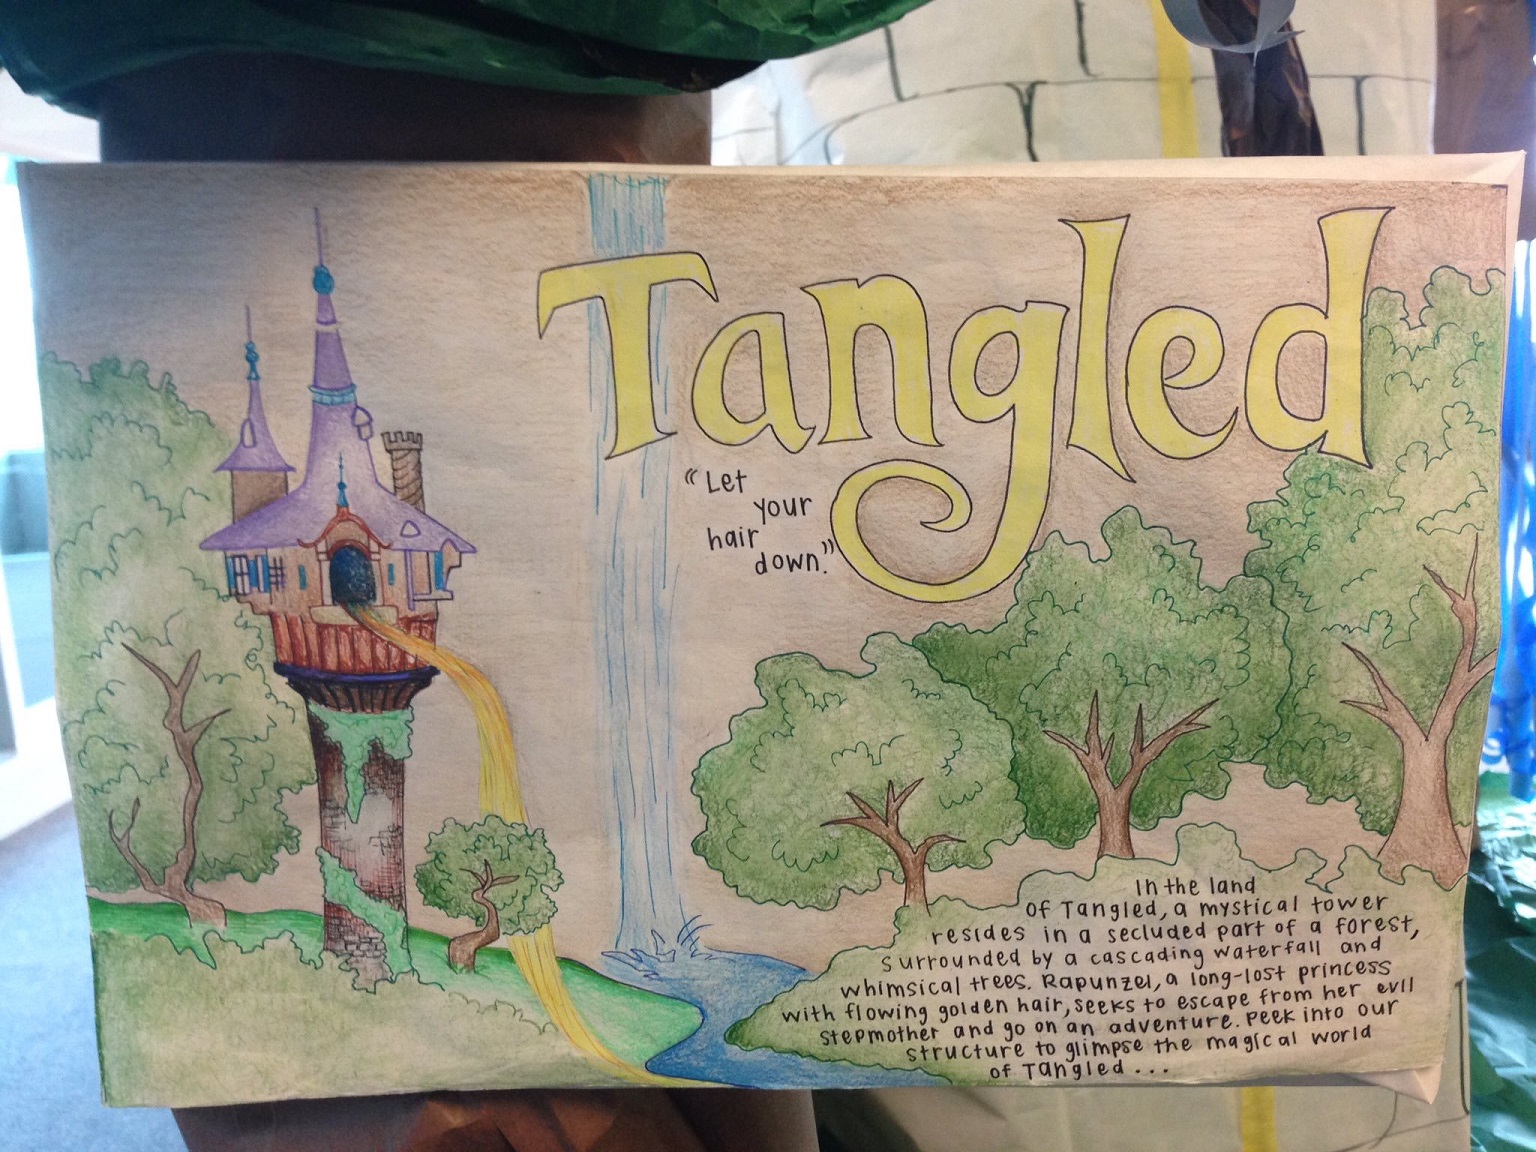 Tangled
"Let
your
hair
down."
In the land
of Tangled, a mystical tower
resides in a secluded part of a forest,
surrounded by a cascading waterfall and
whimsical trees. Rapunzel, a long-lost princess
with flowing golden hair, seeks to escape from her evil
stepmother and go on an adventure. Peek into our
structure to glimpse the magical world
of Tangled...